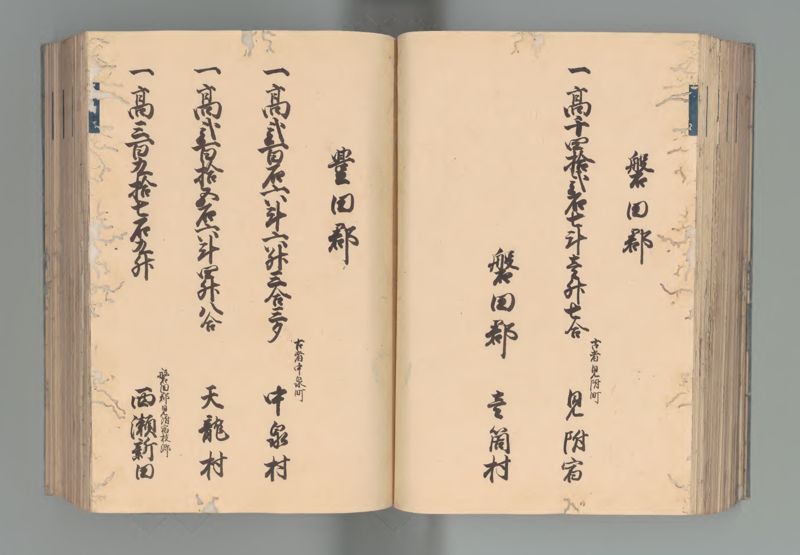 磐田郡
一高千四拾弐石七斗壱升七合
古者見附町
見附宿
磐田郡 壱箇村
豊田郡
一高弐百石六斗六升三合三夕
古者中泉町
中泉村
一高弐百拾五石六斗四升八合
天龍村
一高三百九拾七石九升
磐田郡見附宿枝郷
西瀬新田